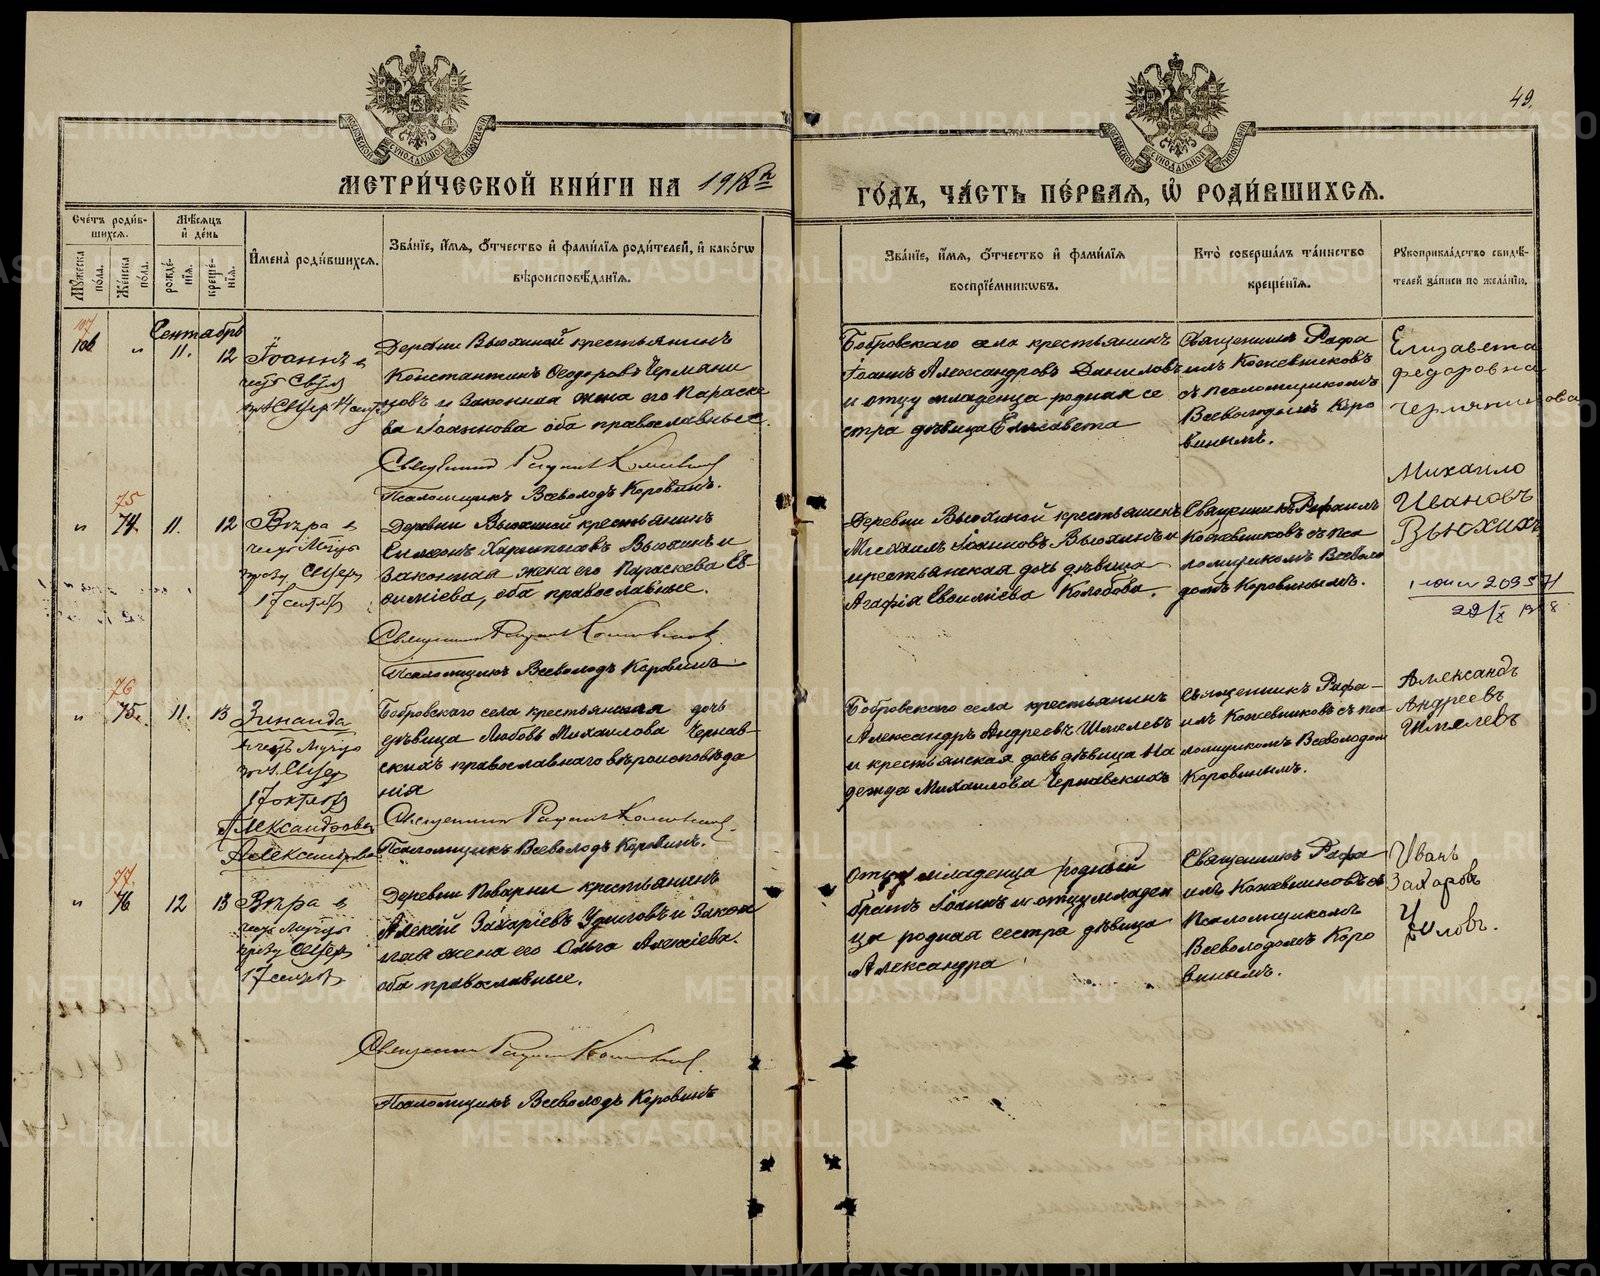 49.
МЕТРИ́ЧЕСКОЙ КНИ́ГИ НА 1918 й
ГО́ДЪ, ЧА́СТЬ ПЕ́РВАЯ, Ѡ РОДИ́ВШИХСЯ.
Сче́тъ роди́в-
шихся.
Мѣ́сяцъ
и де́нь
Му́жеска
по́ла.
Же́нска
по́ла.
рожде́-
нїя.
креще́-
нїя.
И́мена̀ роди́вшихся.
Зва́нїе, и́мя, о́тчество и фами́лїя роди́телей, и како́гѡ
вѣроисповѣ́данїя.
Зва́нїе, и́мя, о́тчество и фами́лїя
воспрїе́мниковъ.
Кто̀ соверша́лъ та́инство
креще́нїя.
Рукоприкла́дство свидѣ́-
телей за́писи по жела́нїю.
Сентябрь
107
106 „ 11. 12
Іоаннъ
Деревни Вьюхиной крестьянинъ
Константинъ Ѳеодоровъ Чермяни
новъ и законная жена его Параске
ва Іоаннова оба православные.
Псаломщикъ Всеволодъ Коровинъ.
Бобровскаго села крестьянинъ
Іоаннъ Александровъ Даниловъ
и отцу младенца родная се
стра дѣвица Елисавета
Священникъ Рафа
илъ Кожевниковъ
съ псаломщикомъ
Всеволодомъ Коро
винымъ.
Елизавета
Федоровна
Чермянинова
75
„ 74. 11. 12
Вѣра
17 сентяб
Деревни Вьюхиной крестьянинъ
Симеонъ Харитоновъ Вьюхинъ и
законная жена его Параскева Ев
ѳиміева, оба православные.
Псаломщикъ Всеволодъ Коровинъ
Деревни Вьюхиной крестьянинъ
Михаилъ Іоанновъ Вьюхинъ и
крестьянская дочь дѣвица
Агафія Евѳиміева Колобова.
Священникъ Рафаилъ
Кожевниковъ съ пса
ломщикомъ Всеволо
домъ Коровинымъ.
Михаило
Ивановъ
Вьюхихъ
76
„ 75. 11. 13
Зинаида
17 октяб
Александровна
Александрова
Бобровскаго села крестьянская дочь
дѣвица Любовь Михаилова Чернав-
скихъ православнаго вѣроисповѣда
нія
Псаломщикъ Всеволодъ Коровинъ.
Бобровскаго села крестьянинъ
Александръ Андреевъ Шмелевъ
и крестьянская дочь дѣвица На
дежда Михаилова Чернавскихъ
Священникъ Рафа-
илъ Кожевниковъ съ пса
ломщикомъ Всеволодом
Коровинымъ.
Александъ
Андреевъ
Шмелевъ
77
„ 76 12 13
Вѣра
17 сентяб
Деревни Поварни крестьянинъ
Алексій Захаріевъ Уфиловъ и закон
ная жена его Ольга Алексіева.
оба православные.
Псаломщикъ Всеволодъ Коровинъ
Отцу младенца родный
братъ Іоаннъ и отцу младен
ца родная сестра дѣвица
Александра
Священникъ Рафа
илъ Кожевниковъ съ
Псаломщикомъ
Всеволодомъ Коро
винымъ.
Иванъ
Захаровъ
METRIKI.GASO-URAL.RU